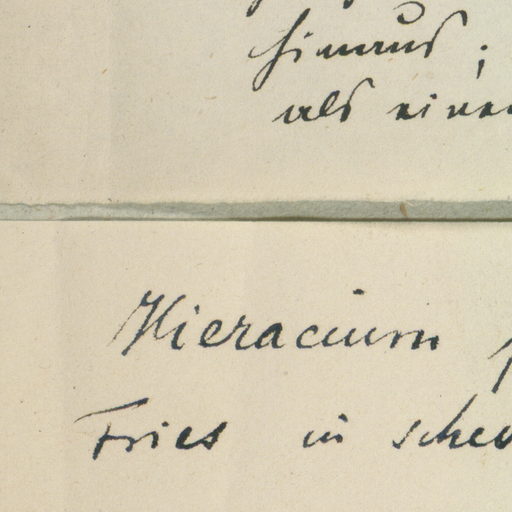 hinaus;
als einen
Hieracium
Fries in sche